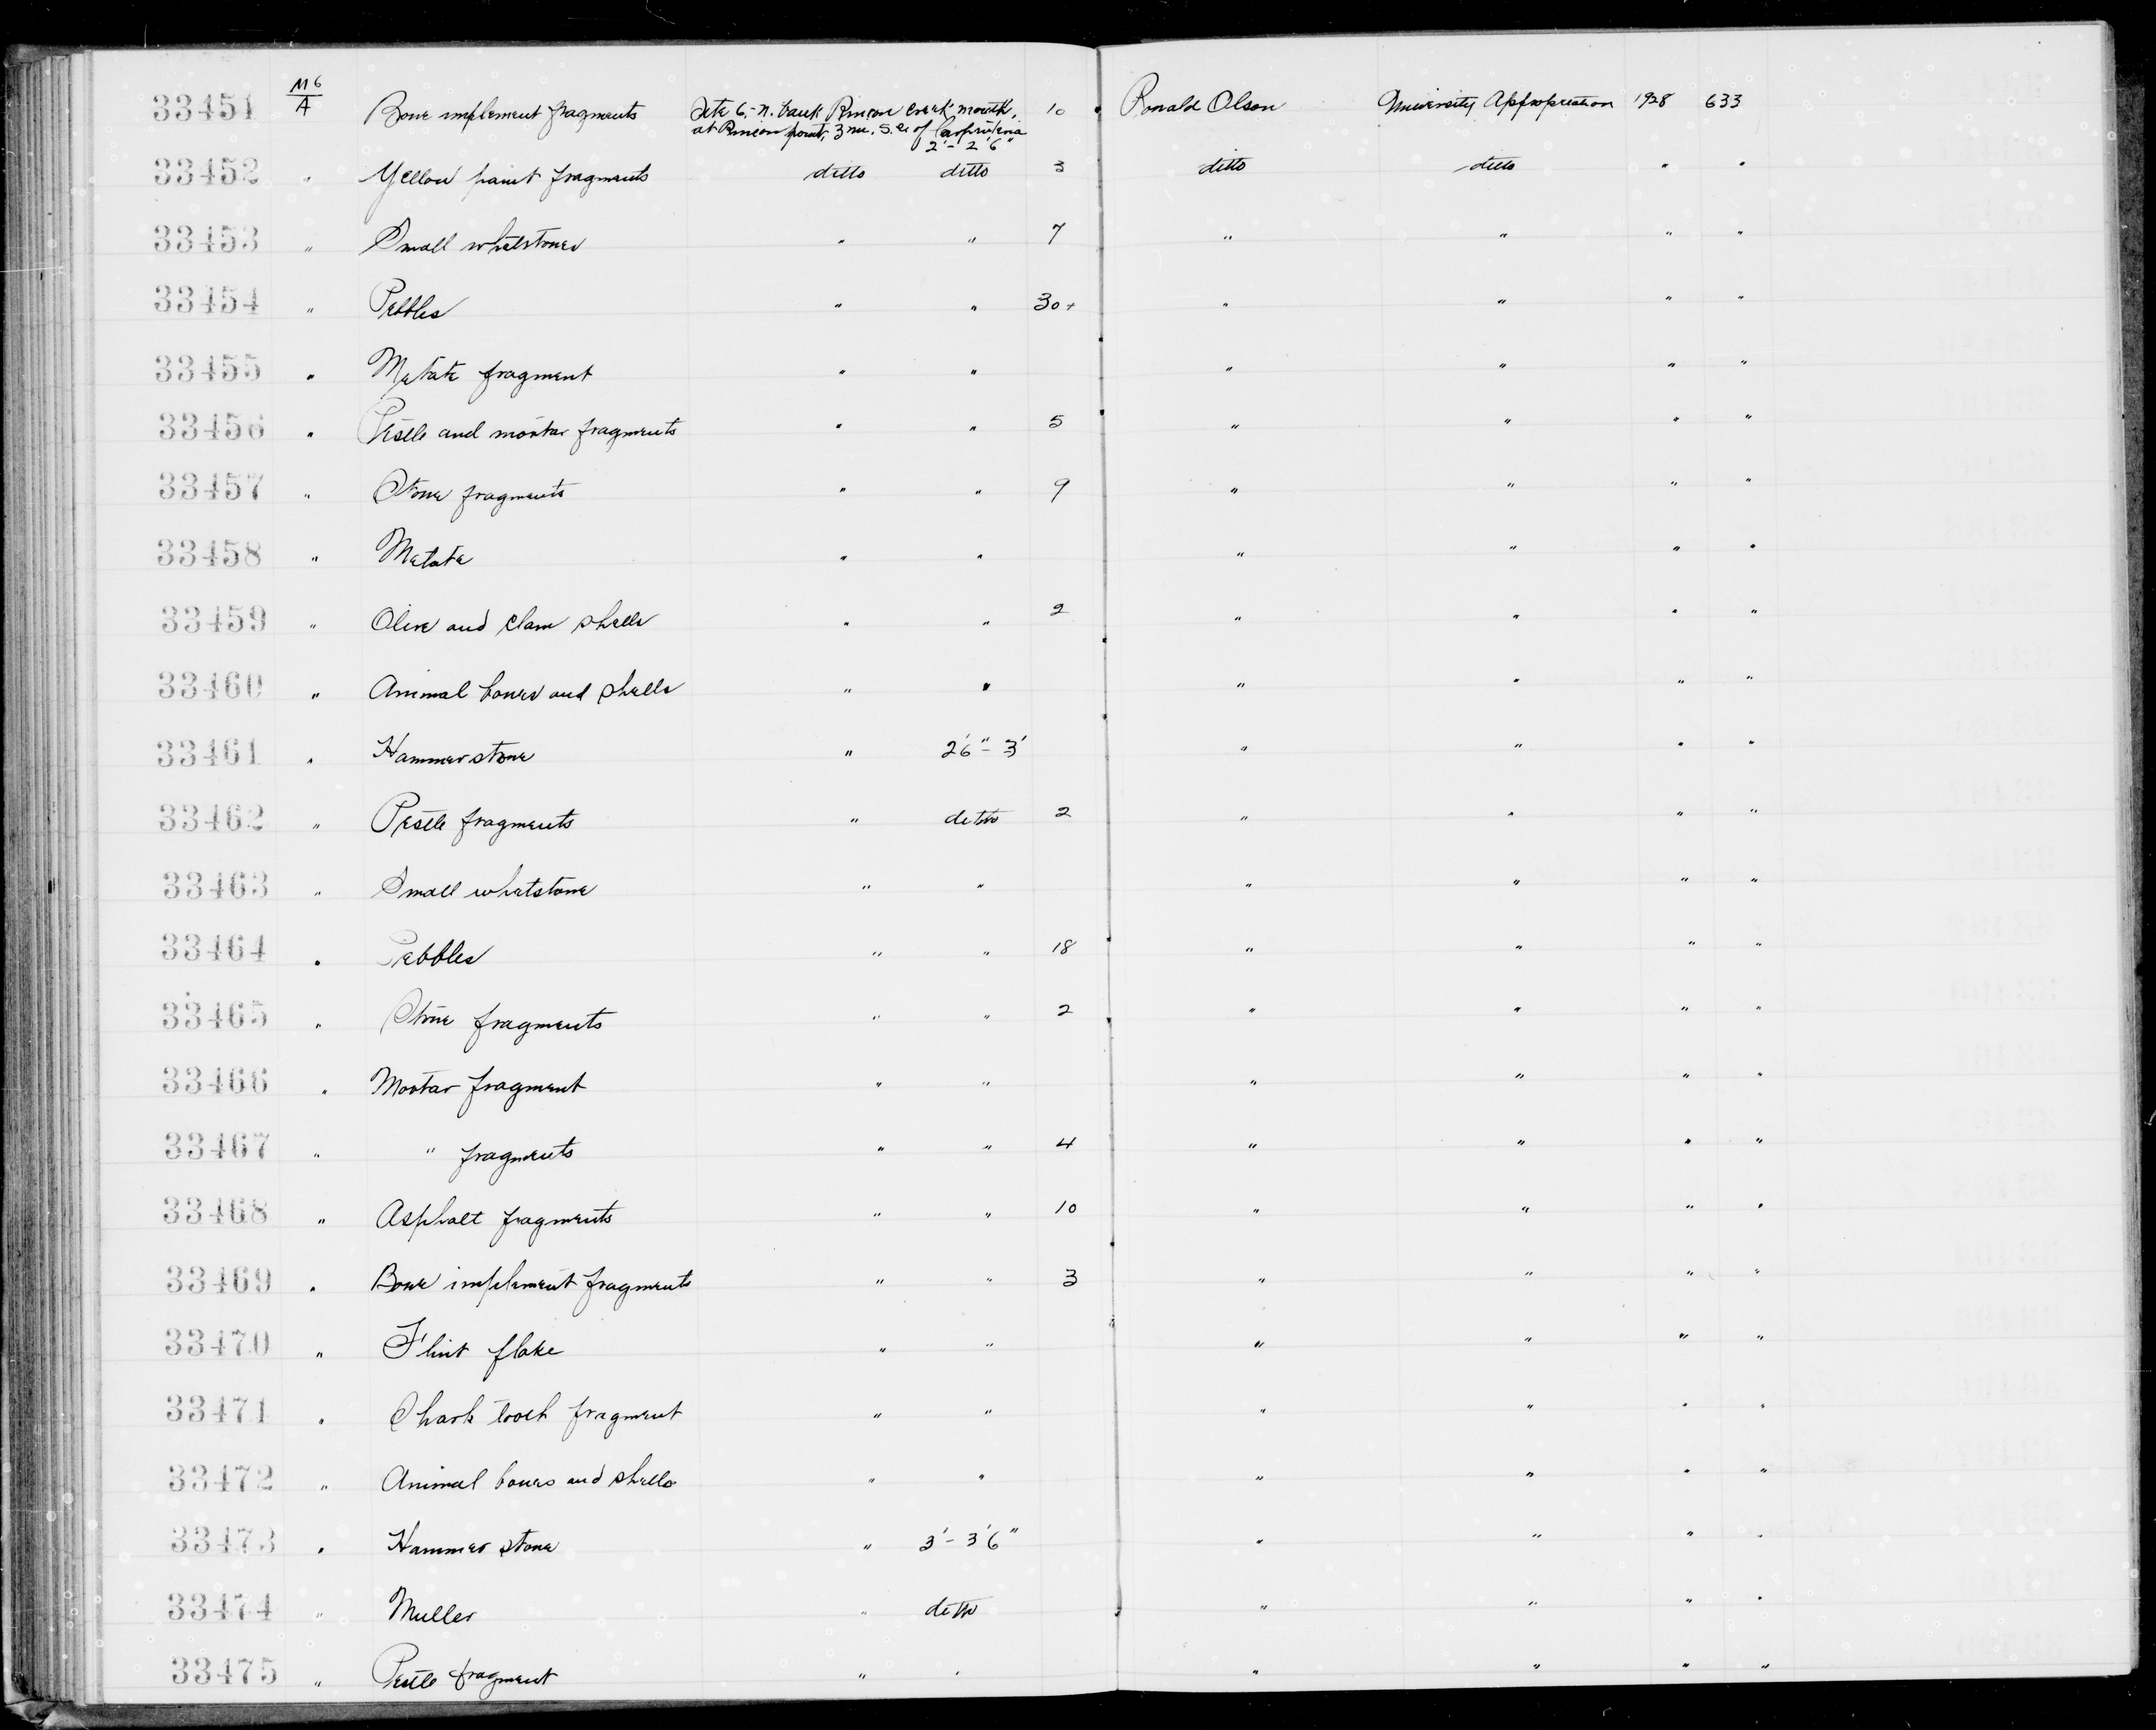 33451 M6/A Bone implement fragments Site 6, - N. bank Rincon Creek mouth, 10 Ronald Olson University Appropriation 1928 633
at Rincon point, 3 mi. S.E. of Carpinteria
2' - 2'6"
33452 " Yellow paint fragments ditto ditto 3 ditto ditto " "
33453 " Small whetstones " " 7 " " " "
33454 " Pebbles " " 30+ " " " "
33455 " Metate fragment " " " " " "
33456 " Pestle and mortar fragments " " 5 " " " "
33457 " Stone fragments " " 9 " " " "
33458 " Metate " " " " " "
33459 " Olive and clam shells " " 2 " " " "
33460 " Animal bones and shells " " " " " "
33461 " Hammerstone " 2'6" - 3' " " " "
33462 " Pestle fragments " ditto 2 " " " "
33463 " Small whetstone " " " " " "
33464 " Pebbles " " 18 " " " "
33465 " Stone fragments " " 2 " " " "
33466 " Mortar fragment " " " " " "
33467 " " fragments " " 4 " " " "
33468 " Asphalt fragments " " 10 " " " "
33469 " Bone implement fragments " " 3 " " " "
33470 " Flint flake " " " " " "
33471 " Shark tooth fragment " " " " " "
33472 " Animal bones and shells " " " " " "
33473 " Hammer stone " 3' - 3'6" " " " "
33474 " Muller " ditto " " " "
33475 " Pestle fragment " " " " " "